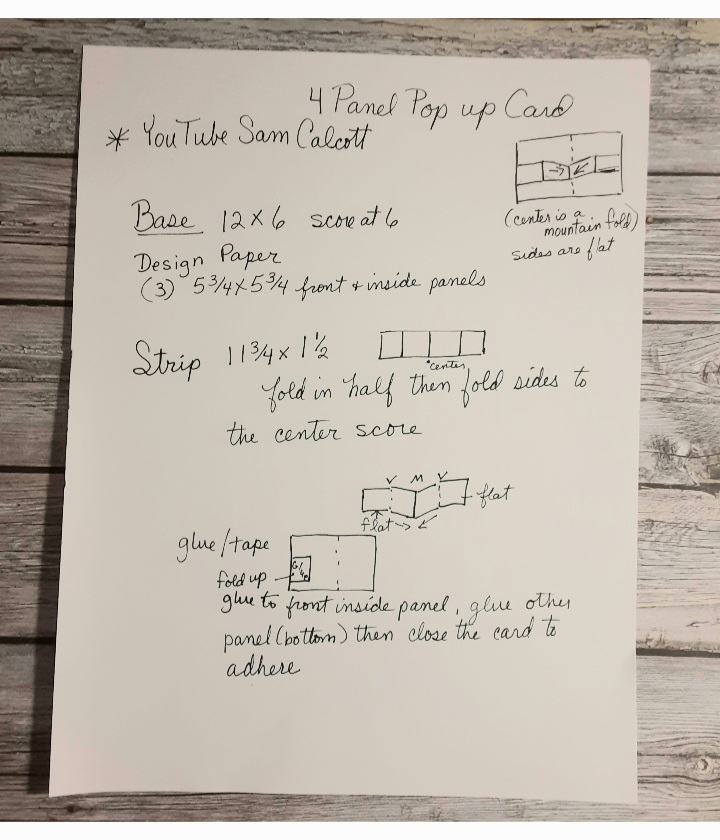 4 Panel Pop up Card
* YouTube Sam Calcott
(center is a
mountain fold)
sides are flat
Base 12 x 6 score at 6
Design Paper
(3) 5 3/4 x 5 3/4 front + inside panels
Strip 11 3/4 x 1 1/2
center
fold in half then fold sides to
the center score
V M V
flat
flat
glue/tape
fold up
glue to front inside panel, glue other
panel (bottom) then close the card to
adhere